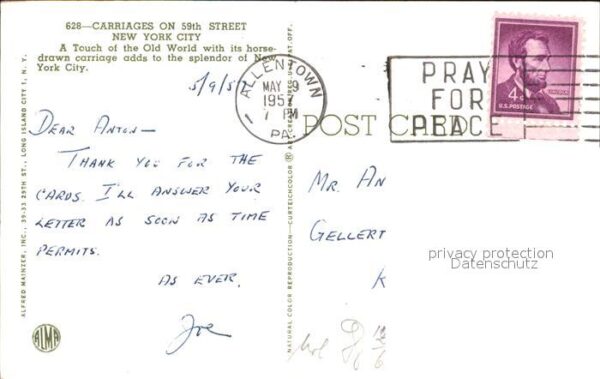 628—CARRIAGES ON 59th STREET
NEW YORK CITY
A Touch of the Old World with its horse-
drawn carriage adds to the splendor of New
York City.
5/9/57
ALLENTOWN
MAY 9
1957
7 PM
PA.
PRAY
FOR
PEACE
4¢
U.S. POSTAGE
POST CARD
DEAR ANTON—
THANK YOU FOR THE
CARDS. I'LL ANSWER YOUR
LETTER AS SOON AS TIME
PERMITS.
AS EVER,
Joe
MR. AN
GELLERT
K
privacy protection
Datenschutz
ALFRED MAINZER, INC., 39-33 29TH ST., LONG ISLAND CITY 1, N. Y.
ALMA
NATURAL COLOR REPRODUCTION—CURTEICHCOLOR ® ART-CREATION U.S. PAT. OFF.